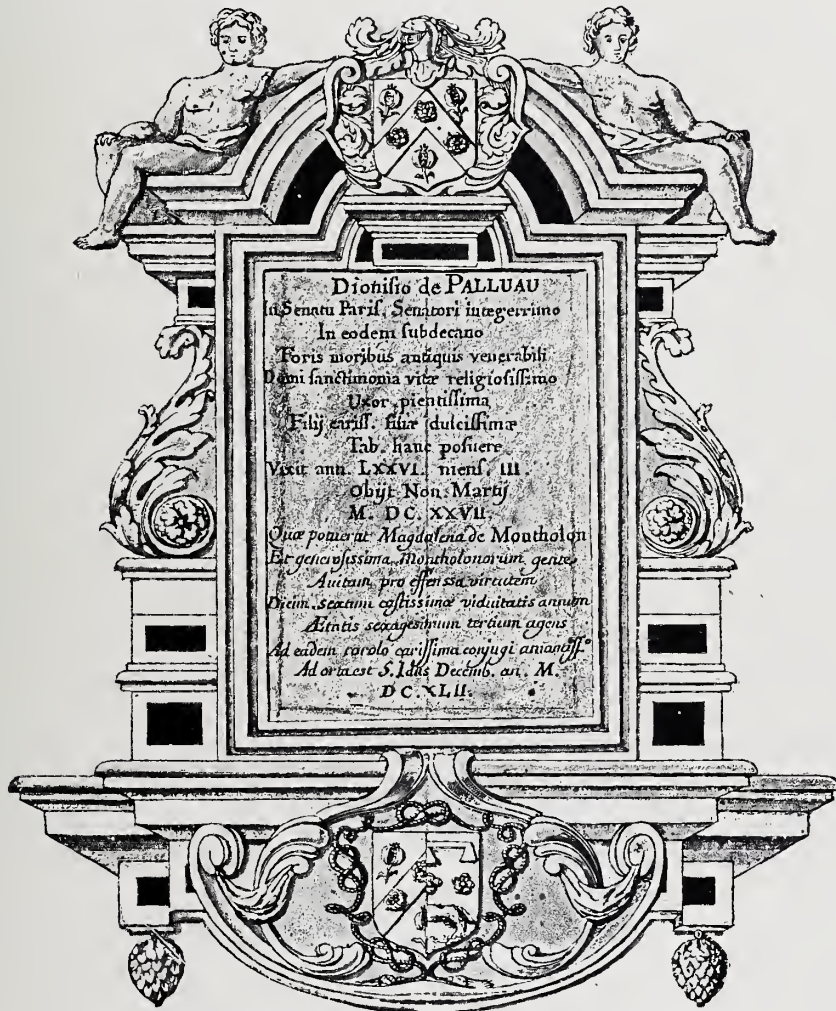 Dionisio de PALLUAU
In Senatu Parif. Senatori integerrimo
In eodem subdecano
Foris moribus antiquis venerabili
Domi sanctimonia vitæ religiosissimo
Uxor pientissima
Filij cariss. filiæ dulcissimæ
Tab. hanc posuere
Vixit ann. LXXVI. mens. III.
Obijt Non. Martij
M. DC. XXVII.
Quæ potuerat Magdalena de Montholon
Et generosissima Montholonorum gente
Avitam pro effenssa virtutem
Decim. sextum castissimæ viduitatis annum
Ætatis sexagesimum tertium agens
Ad eadem carolo carissima conjugi amantiss.
Ad orta est 5. Idus Decemb. an. M.
DC. XLII.